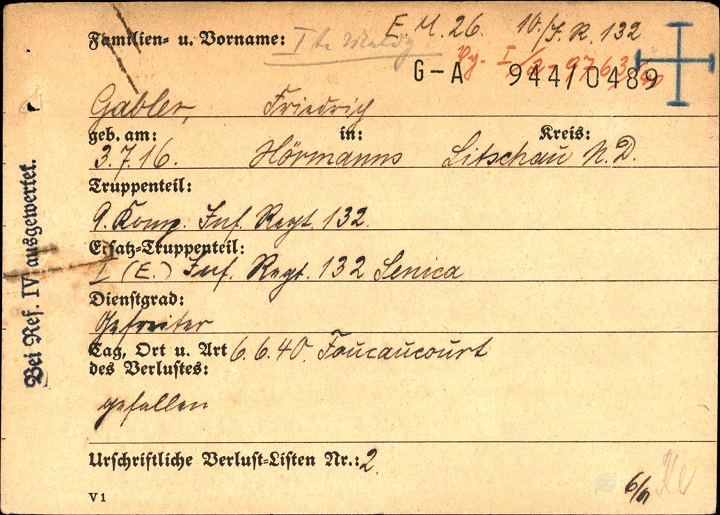 E. M. 26. 10./J.R. 132
Familien- u. Vorname:
G-A 944/0489
Gabler, Friedrich
geb. am: in: Kreis:
3.7.16. Hörmanns Litschau N.D.
Truppenteil:
9. Komp. Inf. Regt. 132.
Ersatz-Truppenteil:
I (E.) Inf. Regt. 132 Senica
Dienstgrad:
Gefreiter
Tag, Ort u. Art 6.6.40. Foucaucourt
des Verlustes:
gefallen
Urschriftliche Verlust-Listen Nr.: 2
V 1
Bei Ref. IV ausgewertet.